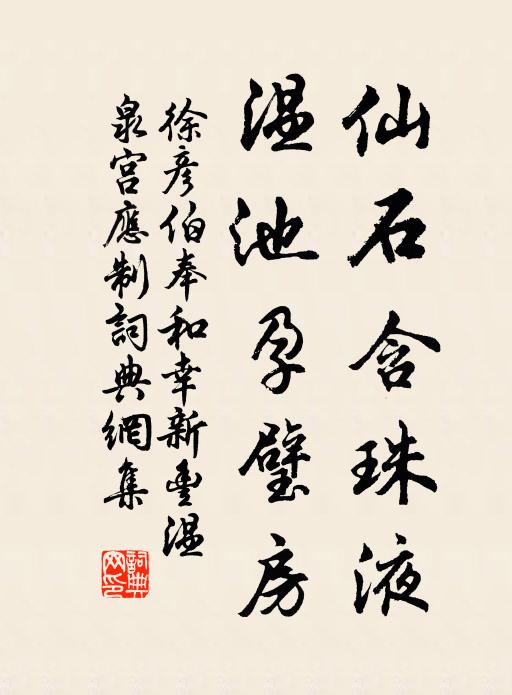 仙石含珠液
温池孕璧房
徐彦伯奉和幸新豐温
泉宫應制詞典網集
詞典網印